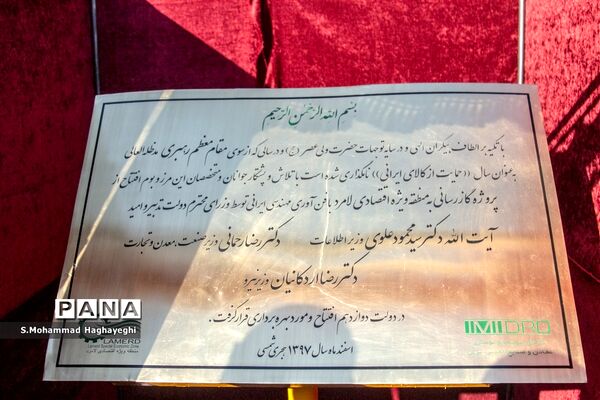 بسم الله الرحمن الرحیم
با تکیه بر الطاف بیکران الهی و در سایه توجهات حضرت ولی عصر (عج) و در سالی که از سوی مقام معظم رهبری مدظله العالی
به عنوان سال ((حمایت از کالای ایرانی)) نامگذاری شده است با تلاش و پشتکار جوانان و متخصصان این مرز و بوم افتتاح از
پروژه گازرسانی به منطقه ویژه اقتصادی لامرد با فن آوری مهندسی ایرانی توسط وزرای محترم دولت تدبیر و امید
آیت الله دکتر سید محمود علوی وزیر اطلاعات دکتر رضا رحمانی وزیر صنعت، معدن و تجارت
دکتر رضا اردکانیان وزیر نیرو
در دولت دوازدهم افتتاح و مورد بهره برداری قرار گرفت.
اسفند ماه سال ۱۳۹۷ هجری شمسی
PANA
S.Mohammad Haghayeghi
LAMERD
Lamerd Special Economic Zone
منطقه ویژه اقتصادی لامرد
IMIDRO